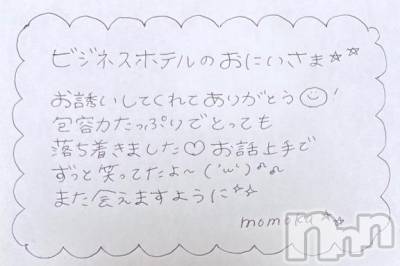 ビジネスホテルのおにいさま☆☆
お誘いしてくれてありがとう☺!
包容力たっぷりでとっても
落ち着きました♡お話上手で
ずっと笑ってたよ〜('ω')♪♪
また会えますように☆☆
momoka☆☆
nn